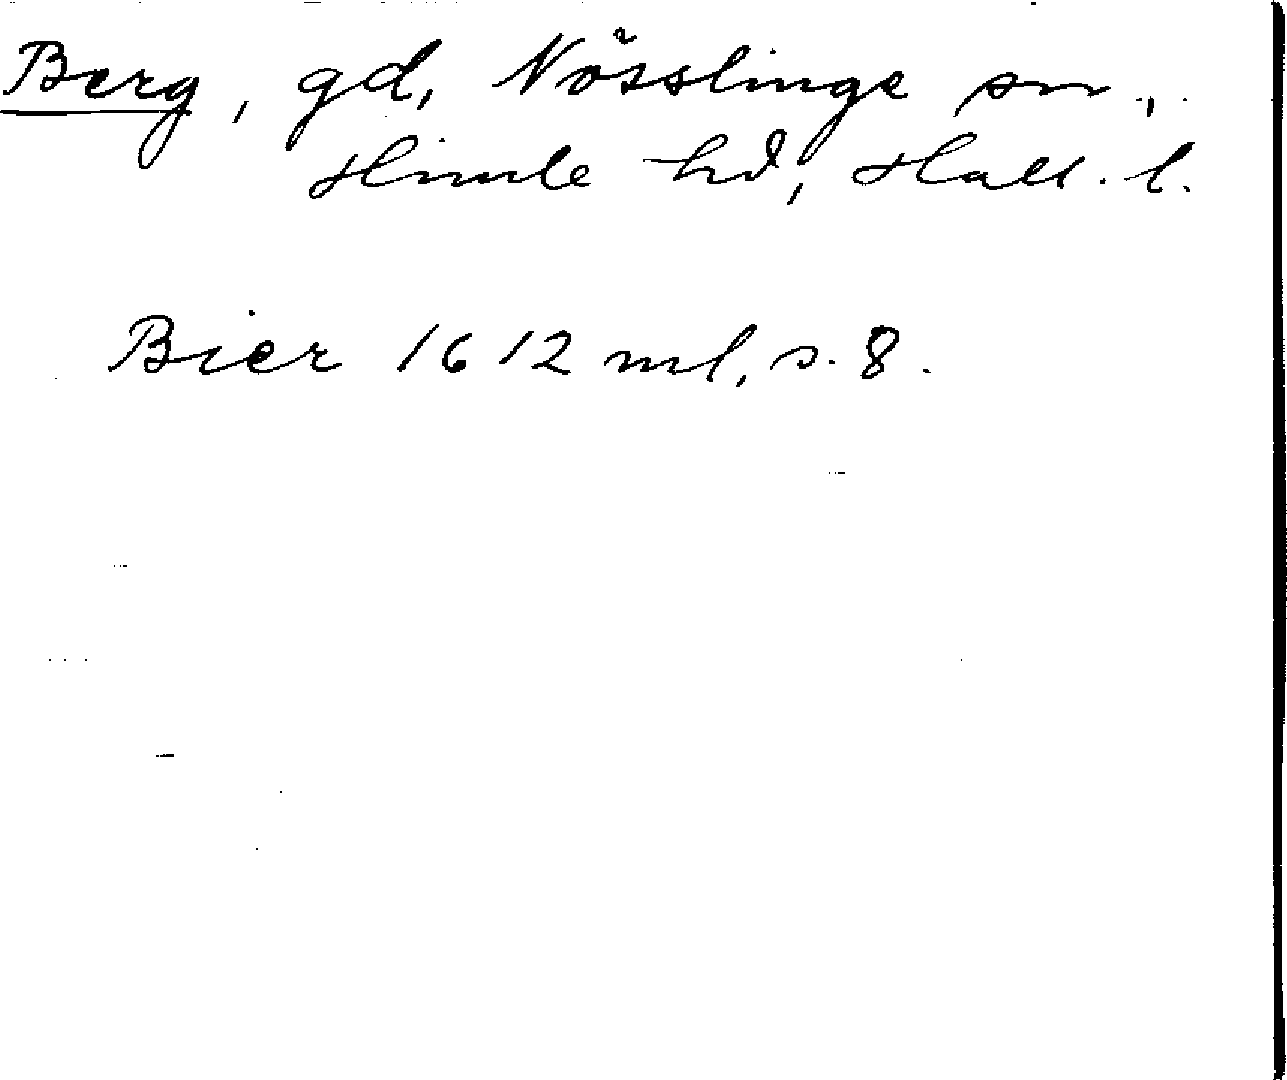 Berg, gd, Nösslinge sn,
Himle hd, Hall. l.
Bier 1612 ml, s. 8.